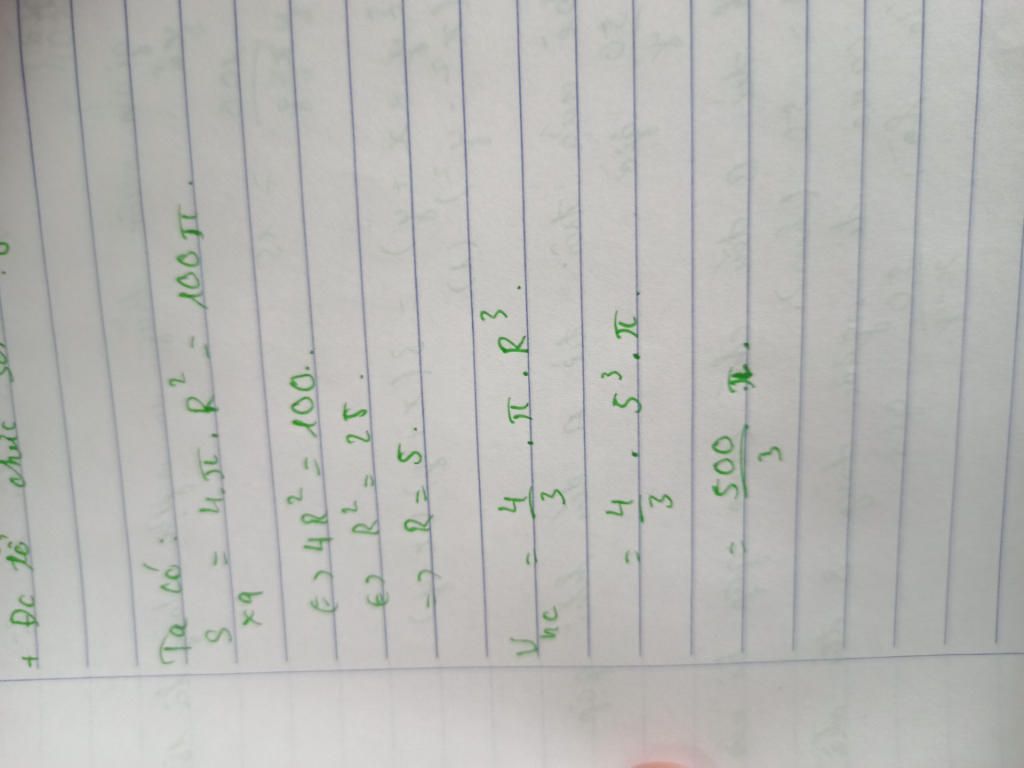 + Đc tổ chức
Ta có:
S xq = 4.π.R² = 100π.
(=) 4R² = 100.
(=) R² = 25.
(=) R = 5.
V hc = 4/3 . π . R³.
= 4/3 . 5³ . π.
= 500/3 π.